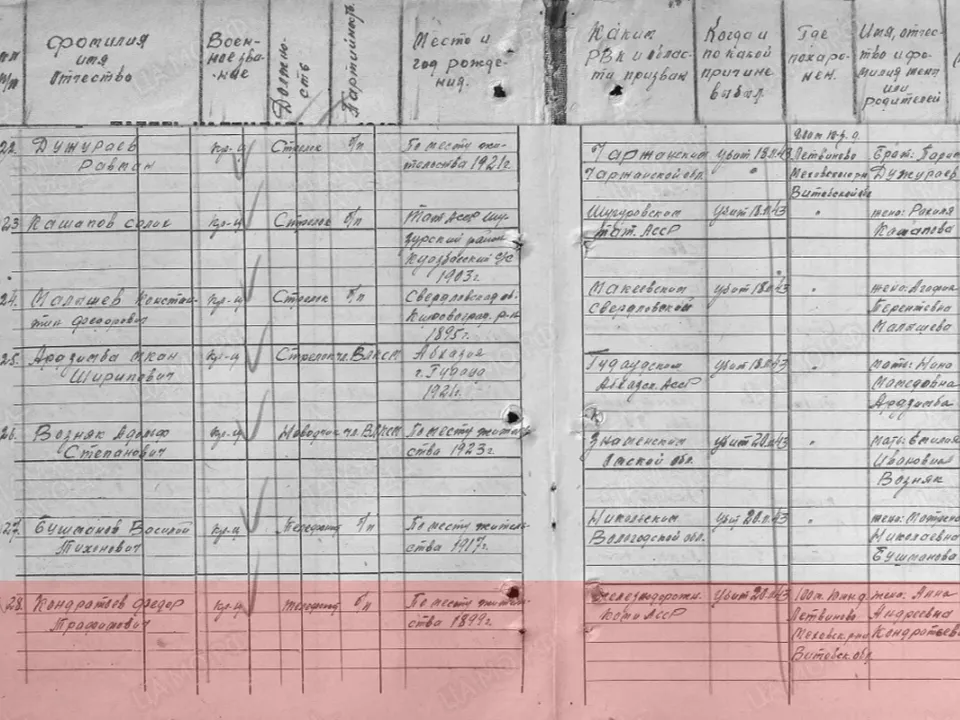 Фамилия имя Отчество
Воен-ное зва-ние
Должно-сть
Партийность
Место и год рожде-ния.
Каким РВК и облас-ти призван
Когда и по какой причине выбыл
Где похоро-нен.
Имя, отчес-тво и фа-милия жены или родителей
22. Дужураев Равман
Кр-ц
Стрелок
б/п
По месту жи-тельства 1921г.
убит 18.11.43
Летвиново Меховского р-н Витебской об
Брат: Дужураев
23 Кашапов Солих
Кр-ц
Стрелок
б/п
Тат. АССР Шу-гурский район 1903г.
Шугуровским Тат. АССР
убит 18.11.43
"
жена: Кашапова
24. Малышев Констан-тин Федорович
Кр-ц
Стрелок
б/п
Свердловская об. Кировоград. р-н 1895г.
Свердловской
убит 18.11.43
"
жена: Терентевна Малышева
25. Ардзинба Шкан Ширипович
Кр-ц
Стрелок
чл. ВЛКСМ
Абхазия г. Гудаута 1921г.
Гудаудским Абхазск. АССР
убит 18.11.43
"
мать: Нина Мамедовна Ардзинба
26. Возняк Адольф Степанович
Кр-ц
Наводчик
чл. ВЛКСМ
По месту житель-ства 1923г.
Знаменским Омской обл.
убит 20.11.43
"
мать: Емилия Ивановна Возняк
27. Бушманов Василий Тихонович
Кр-ц
Телефонист
б/п
По месту житель-ства 1917г.
Никольским Вологодской обл.
убит 20.11.43
"
жена: Матрена Николаевна Бушманова
28. Кондратьев Федор Трафимович
Кр-ц
телефонист
б/п
По месту житель-ства 1899г.
Железнодорожн. Коми АССР
убит 20.11.43
100м. Южн. д. Летвиново Меховск. р-на Витебск. обл.
жена: Анна Андреевна Кондратьева